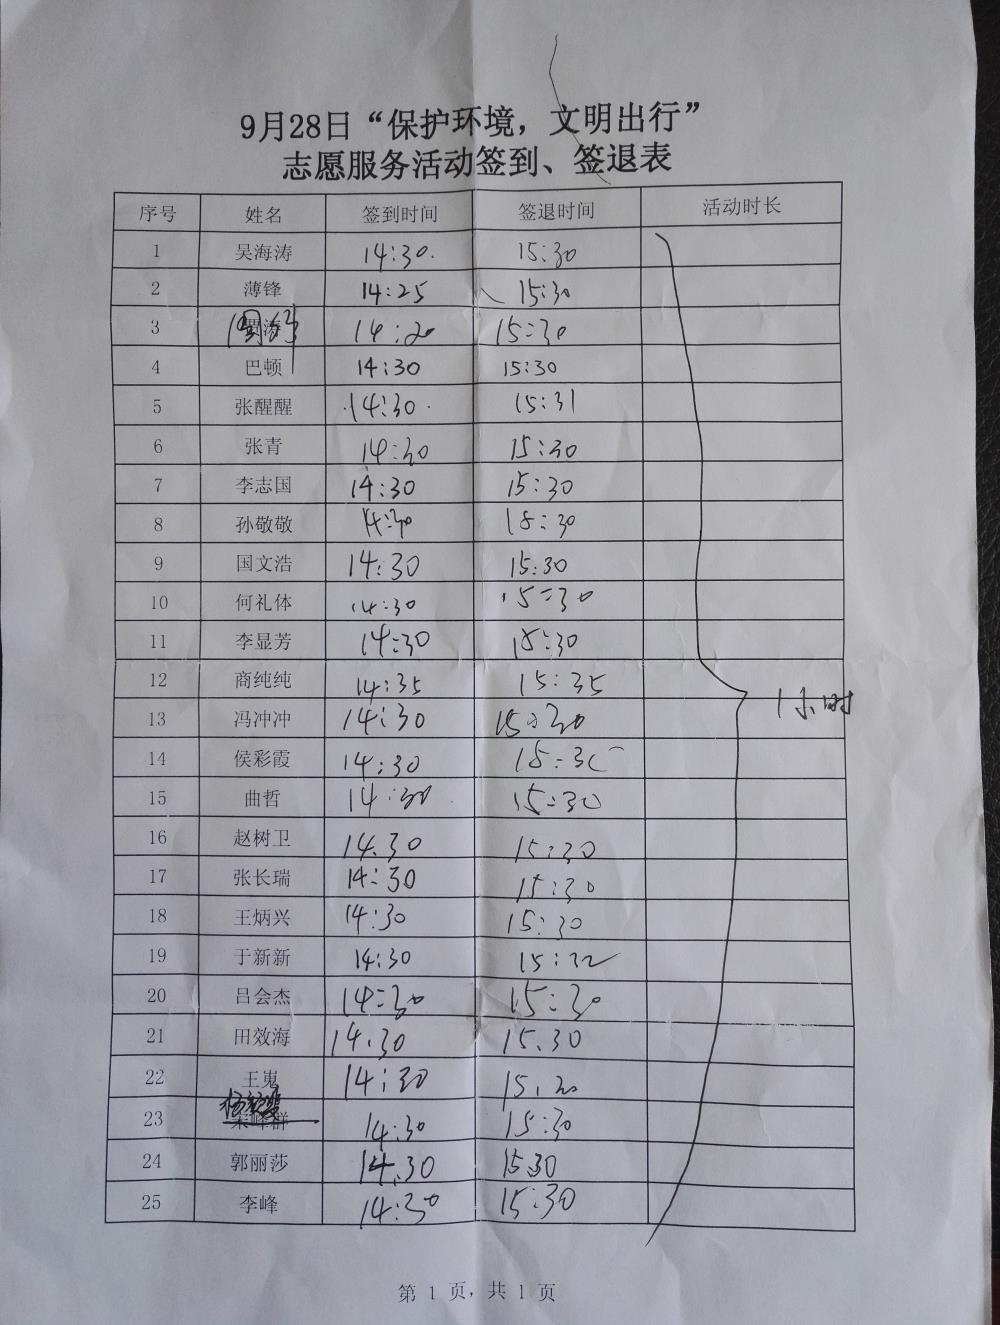 9月28日“保护环境，文明出行”
志愿服务活动签到、签退表
序号 姓名 签到时间 签退时间 活动时长
1 吴海涛 14:30 15:30
2 薄锋 14:25 15:30
3 14:20 15:30
4 巴顿 14:30 15:30
5 张醒醒 14:30 15:31
6 张青 14:30 15:30
7 李志国 14:30 15:30
8 孙敬敬 14:30 15:30
9 国文浩 14:30 15:30
10 何礼体 14:30 15:30
11 李显芳 14:30 15:30
12 商纯纯 14:35 15:35
1小时
13 冯冲冲 14:30 15:30
14 侯彩霞 14:30 15:30
15 曲哲 14:30 15:30
16 赵树卫 14.30 15:30
17 张长瑞 14:30 15:30
18 王炳兴 14:30 15:30
19 于新新 14:30 15:32
20 吕会杰 14:30 15:30
21 田效海 14.30 15.30
22 王嵬 14:30
23 14:30 15:30
24 郭丽莎 14.30 15.30
25 李峰 14:30 15:30
第 1 页，共 1 页